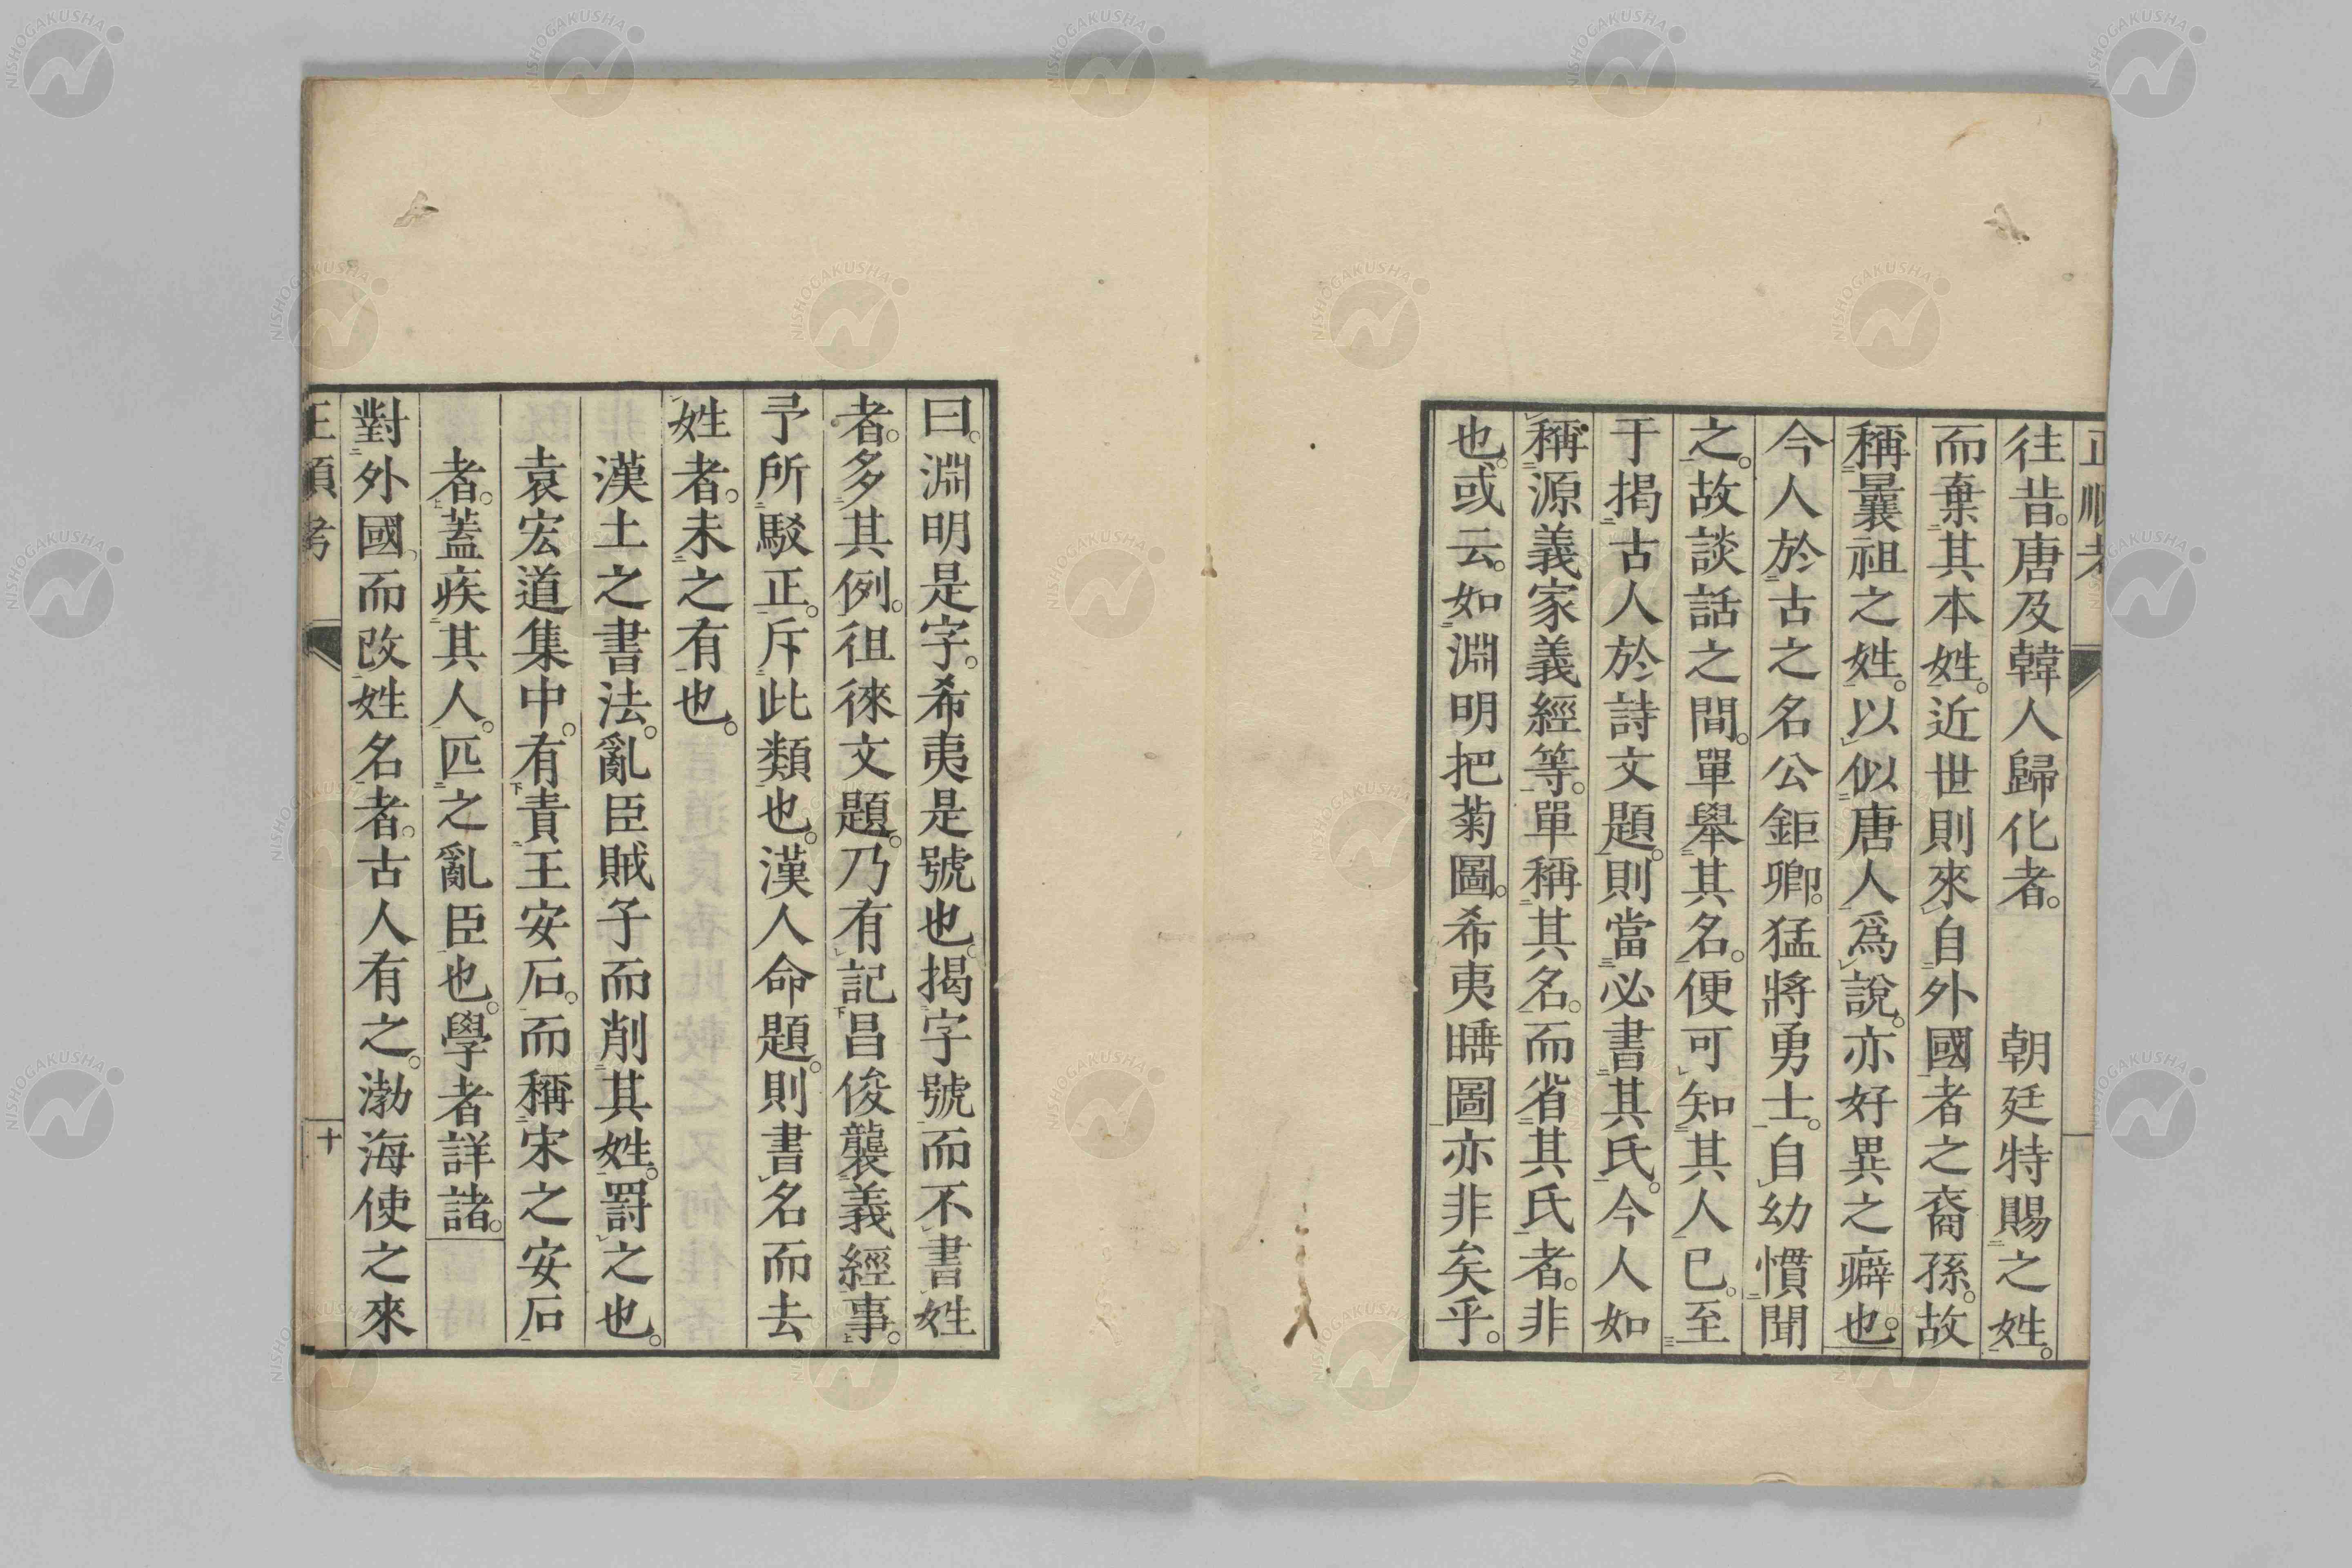 正順考
往昔。唐及韓人歸化者。　朝廷特賜之姓。
而棄其本姓。近世則來自外國者之裔孫。故
稱曩祖之姓。以似唐人爲說。亦好異之癖也。
今人於古之名公鉅卿。猛將勇士。自幼慣聞
之。故談話之間。單舉其名。便可知其人已。至
于揭古人於詩文題。則當必書其氏。今人如
稱源義家義經等。單稱其名。而省其氏者。非
也。或云。如淵明把菊圖。希夷睡圖亦非矣乎。
曰。淵明是字。希夷是號也。揭字號而不書姓
者。多其例。徂徠文題。乃有記昌俊襲義經事。
予所駁正。斥此類也。漢人命題。則書名而去
姓者。未之有也。
漢土之書法。亂臣賊子而削其姓。罰之也。
袁宏道集中。有責王安石。而稱宋之安石
者。蓋疾其人。匹之亂臣也。學者詳諸。
對外國。而改姓名者。古人有之。渤海使之來
正順考
十
NISHOGAKUSHA